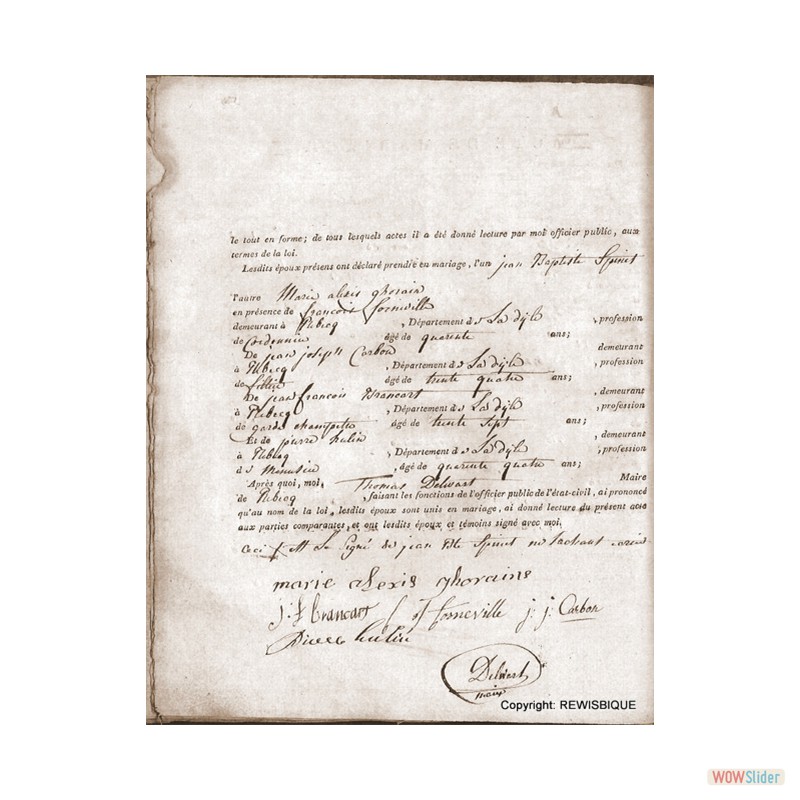 le tout en forme; de tous lesquels actes il a été donné lecture par moi officier public, aux
termes de la loi.
Lesdits époux présens ont déclaré prendre en mariage, l'un jean Baptiste Spinet
l'autre Marie alexis ghorain
en présence de françois forneville
demeurant à Rebecq , Département de La dyle , profession
de Cordonnier âgé de quarente ans;
De jean joseph Carbon demeurant
à Rebecq , Département de La dyle , profession
de âgé de trente quatre ans;
De jean françois Brancart , demeurant
à Rebecq , Département de La dyle , profession
de garde champette âgé de trente sept ans;
Et de pierre hulin , demeurant
à Rebecq , Département de La dyle , profession
de Menusier , âgé de quarente quatre ans;
Après quoi, moi, Thomas Delwart Maire
de Rebecq , faisant les fonctions de l'officier public de l'état-civil, ai prononcé
qu'au nom de la loi, lesdits époux sont unis en mariage, ai donné lecture du présent acte
aux parties comparantes, et ont lesdits époux et témoins signé avec moi.
Ceci est Le Signé de jean Bte Spinet ne sachant
marie alexis ghorains
j. f Brancart f forneville j. j. Carbon
Pierre hulin
Delwart
maire
Copyright: REWISBIQUE
WOWSlider